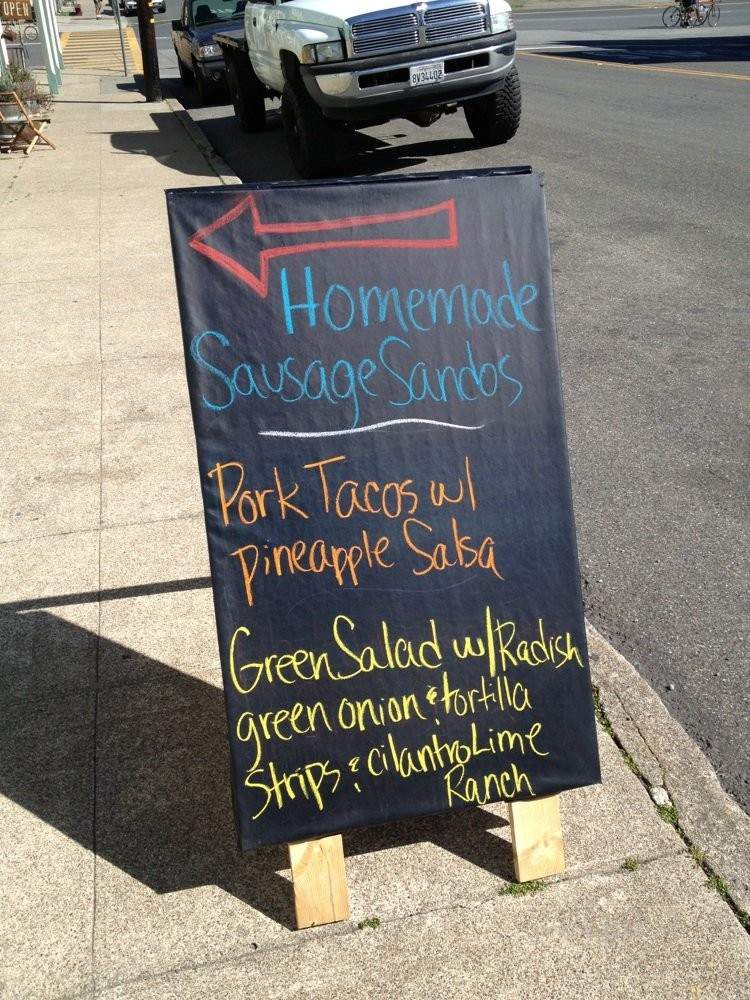 OPEN
8V34402
Homemade
Sausage Sandos
Pork Tacos w/
pineapple Salsa
Green Salad w/Radish
green onion & tortilla
Strips & cilantro Lime
Ranch